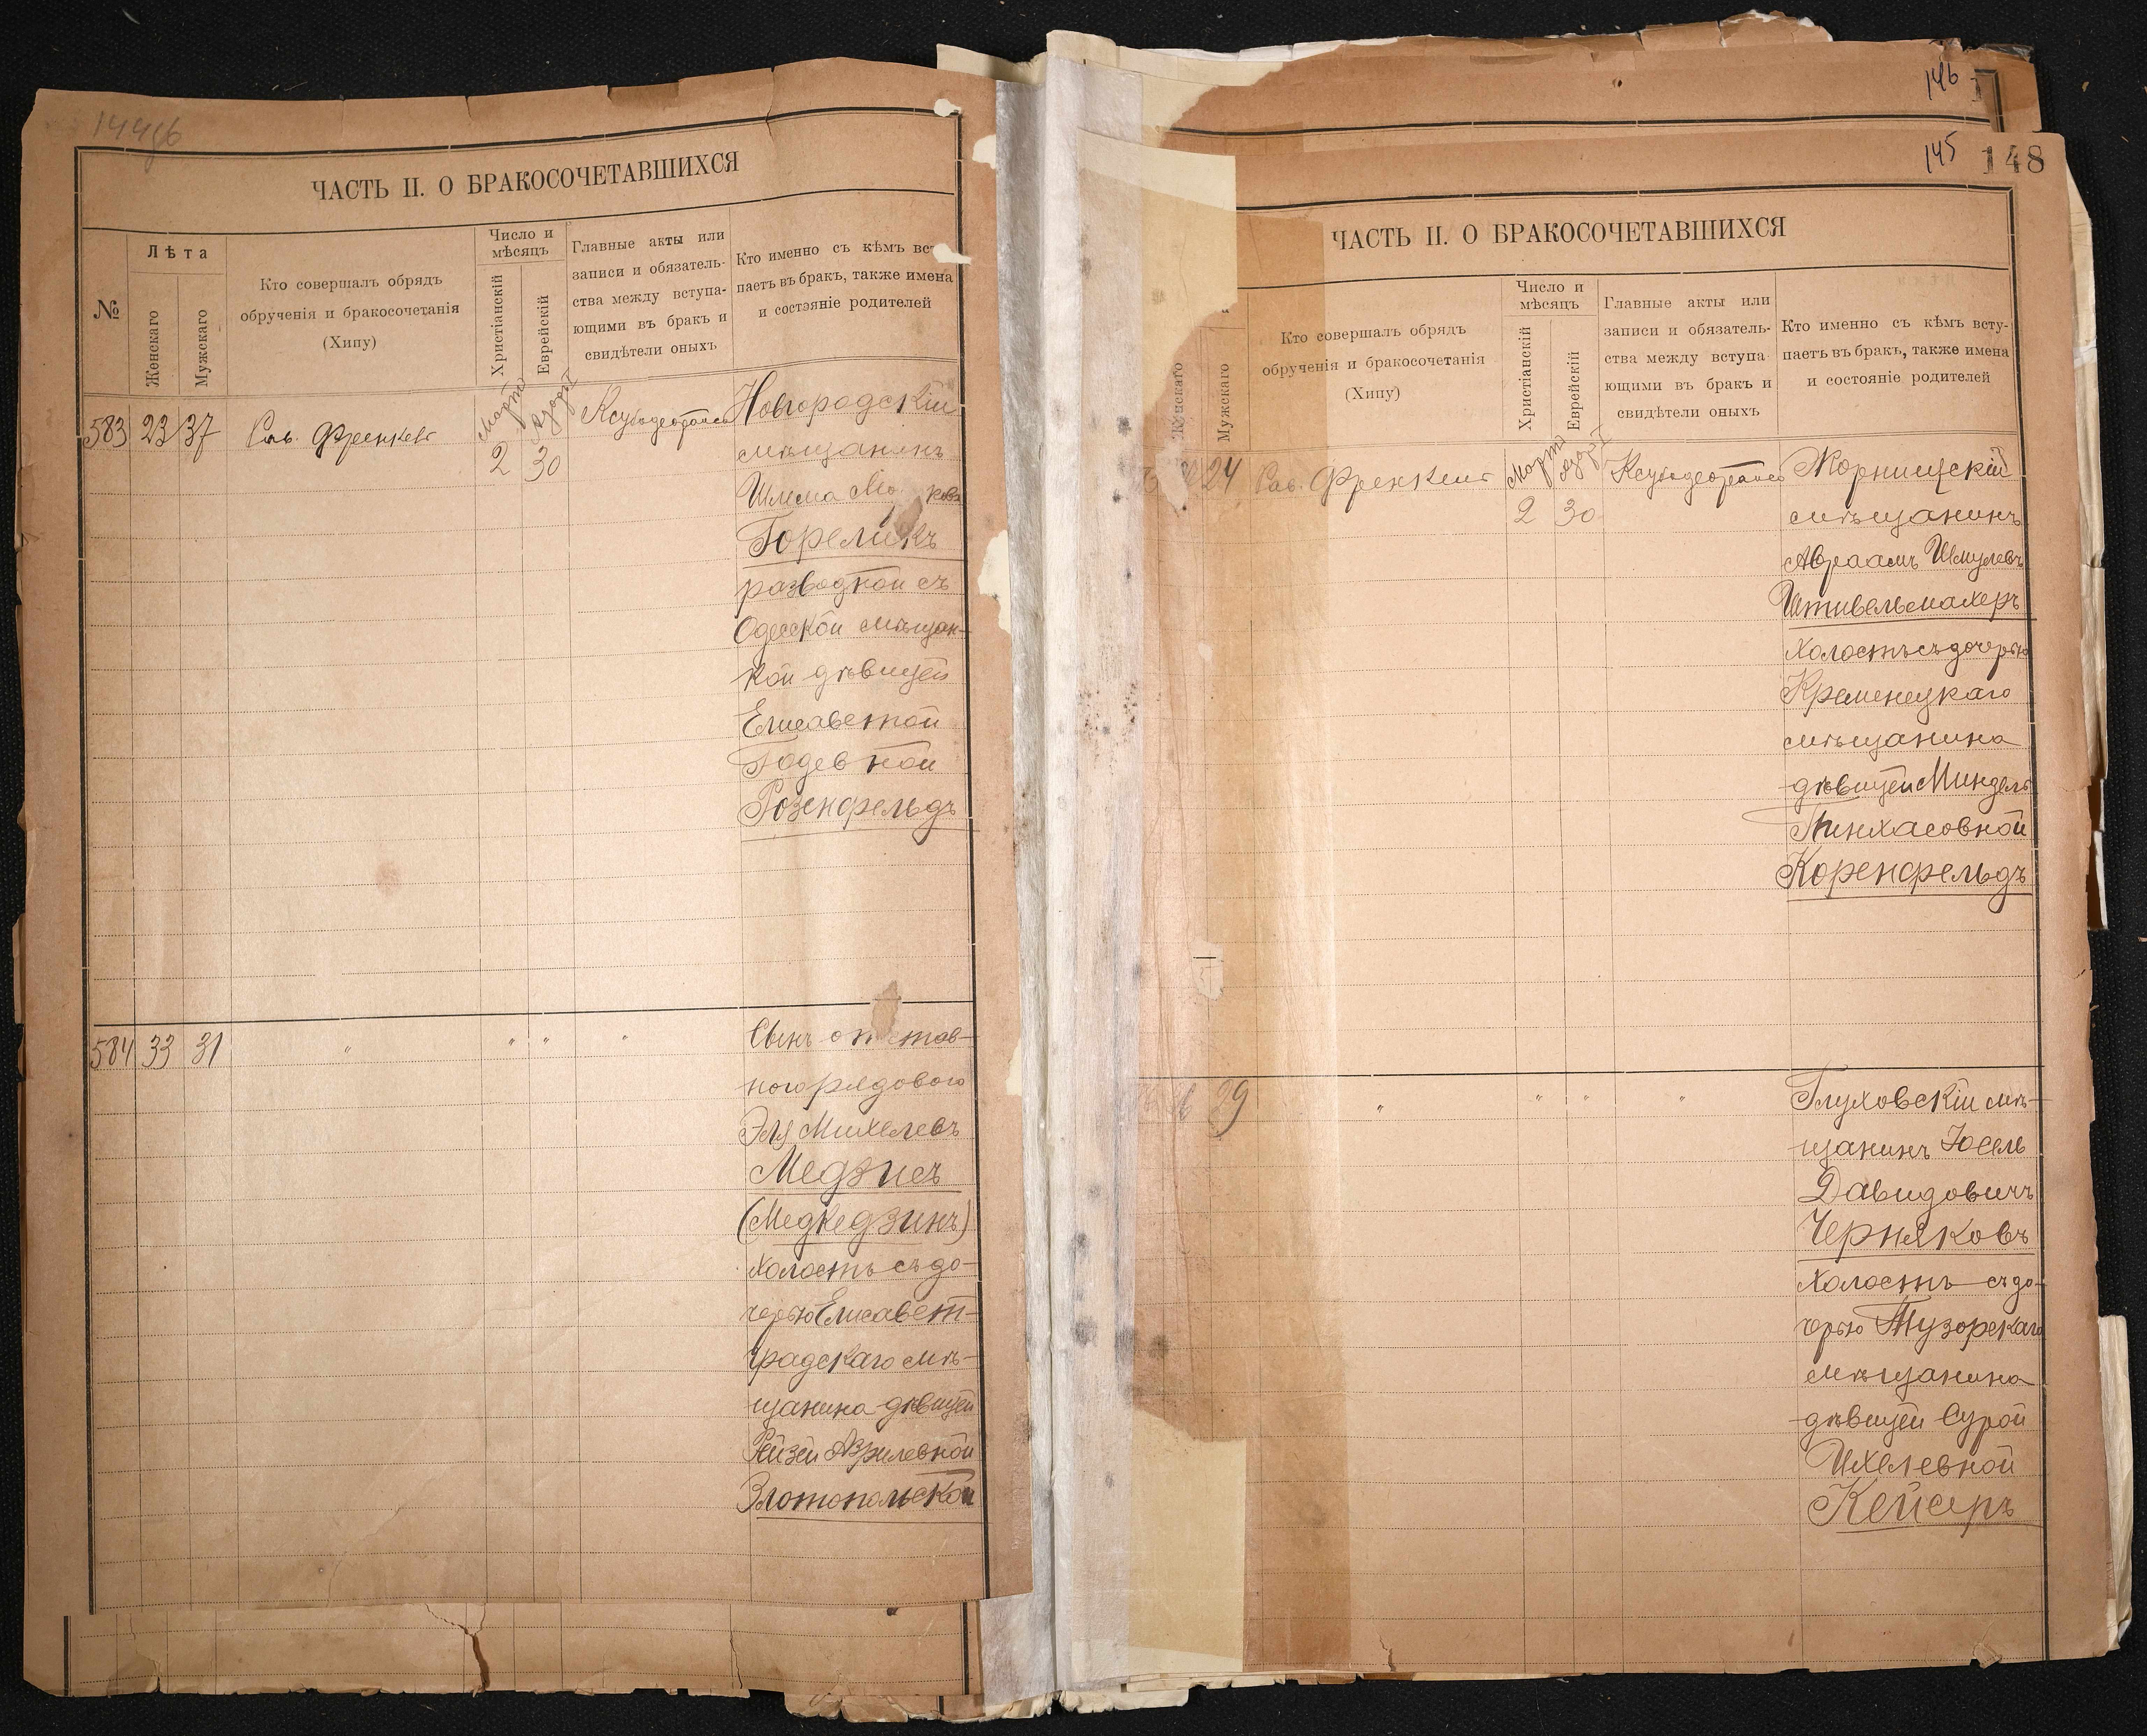 ЧАСТЬ II. О БРАКОСОЧЕТАВШИХСЯ
№
Лѣта
Женскаго
Мужскаго
Кто совершалъ обрядъ
обрученія и бракосочетанія
(Хипу)
Число и
мѣсяцъ
Христіанскій
Еврейскій
Главные акты или
записи и обязатель-
ства между вступа-
ющими въ бракъ и
свидѣтели оныхъ
Кто именно съ кѣмъ вс
паетъ въ бракъ, также имена
и состояніе родителей
583 23 37
Марта
2 30
Новгородскій
мѣщанинъ
Шлема
Гореликъ
разводной съ
Одесской мѣщан-
кой дѣвицей
Елисаветой
Годевной
Розенфельдъ
584 33 31 " " " "
Сынъ отстав-
ного рядового
Эля Михелевъ
Медзисъ
(Медведзинъ)
холостъ съ до-
черью Елисавет-
градскаго мѣ-
щанина дѣвицей
Рейзей Азрилевной
Златопольской
146
145 148
ЧАСТЬ II. О БРАКОСОЧЕТАВШИХСЯ
Женскаго
Мужскаго
Кто совершалъ обрядъ
обрученія и бракосочетанія
(Хипу)
Число и
мѣсяцъ
Христіанскій
Еврейскій
Главные акты или
записи и обязатель-
ства между вступа
ющими въ бракъ и
свидѣтели оныхъ
Кто именно съ кѣмъ всту-
паетъ въ бракъ, также имена
и состояніе родителей
24
Марта
2 30
мѣщанинъ
Авраамъ Шмулевъ
Штивельмахеръ
холостъ съ дочерью
Кременецкаго
мѣщанина
дѣвицей Миндель
Пинхасовной
Коренфельдъ
29 " " " "
Глуховскій мѣ-
щанинъ Іосель
Давидовичъ
Черняковъ
холостъ съ до-
черью Тузорскаго
мѣщанина
дѣвицей Сурой
Ихелевной
Кейсеръ